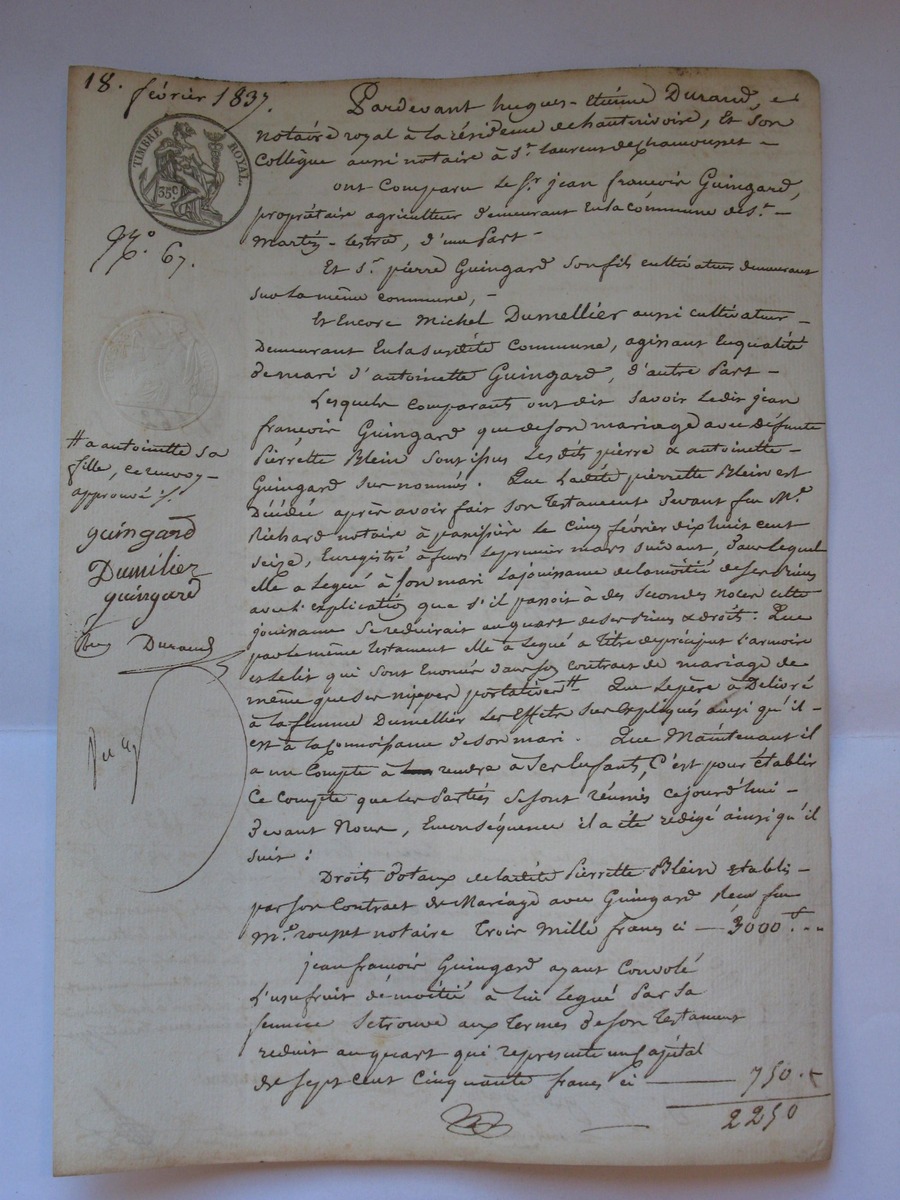 18. février 1837.
TIMBRE ROYAL.
35c
N.o 67.
Pardevant hugues-Etienne Durand,
notaire royal à la résidence de hauterivoire, Et Son
Collègue aussi notaire à St. laurent de chamousset -
ont Comparu le Sr. jean françois Guingard,
propriétaire agriculteur demeurant En la Commune de St. -
Martin-lestra, d'une Part -
Et Sr. pierre Guingard Son fils cultivateur demeurant
Sur la même commune, -
Et Encore Michel Dumellier aussi cultivateur -
Demeurant En la Susdite Commune, agissant En qualité
de mari d'antoinette Guingard, d'autre Part -
Lesquels Comparants ont dit savoir ledit jean
françois Guingard que de son mariage avec défunte
Pierrette Blein sont issus les dits pierre & antoinette -
Guingard sus nommés. Que Ladite pierrette Blein est
Décédée après avoir fait son Testament Devant feu Me.
Richard notaire à panissière le Cinq février dix huit cent
Seize, Enregistré à feurs le premier mars suivant, Par lequel
Elle a Légué à Son mari La jouissance de la moitié de ses Biens
avec l'explication que s'il passoit à des Secondes noces cette
jouissance Se reduirait au quart de ses Biens & droits. Que
par le même Testament Elle a Légué à titre de préciput l'armoire
et le lit qui sont Enoncés dans son contrat de mariage de
même que ses nippes portatives #. Que Le père à Délivré
à la femme Dumellier Les Effets Sus Expliqués ainsi qu'il -
est à la Connoissance de son mari. Que Maintenant il
a un Compte à rendre à Ses Enfants, C'est pour établir
Ce Compte que les Parties Se sont réunies cejourd'hui -
Devant Nous, En conséquence il a été rédigé ainsi qu'il
suit :
Droits dotaux de ladite Pierrette Blein établis -
par son Contract de Mariage avec Guingard feu
Me. notaire Trois Mille francs ci - 3000 f. ..
jean françois Guingard ayant Convolé
L'usufruit de moitié à Lui Légué Par Sa
femme Se trouve aux Termes de son Testament
reduit au quart qui represente un Capital
de Sept Cent Cinquante francs ci — 750.
2250
# a antoinette sa
fille, ce renvoy -
approuvé
guingard
Dumilier
guingard
Durand